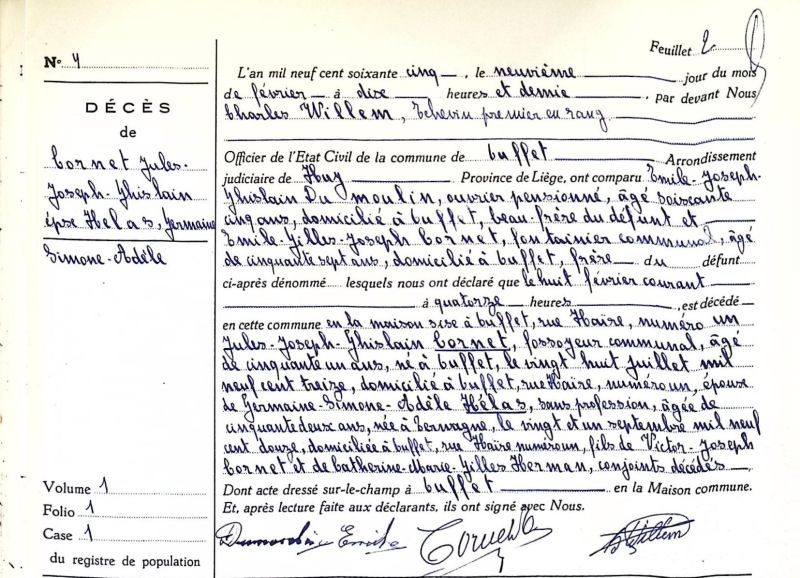 Feuillet 2
N° 4
DÉCÈS
de
Cornet Jules-
Joseph-Ghislain
épse Hélas, Germaine
Simone-Adèle
Volume 1
Folio 1
Case 1
du registre de population
L'an mil neuf cent soixante cinq, le neuvième jour du mois
de février à dix heures et demie, par devant Nous
Charles Willem, Echevin premier en rang
Officier de l'Etat Civil de la commune de Ouffet Arrondissement
judiciaire de Huy Province de Liège, ont comparu Emile-Joseph-
Ghislain Du moulin, ouvrier pensionné, âgé soixante
cinq ans, domicilié à Ouffet, beau-frère du défunt et
Emile-Gilles-Joseph Cornet, fontainier communal, âgé
de cinquante sept ans, domicilié à Ouffet, frère du défunt
ci-après dénommé lesquels nous ont déclaré que le huit février courant
à quatorze heures, est décédé
en cette commune en la maison sise à Ouffet, rue Haire, numéro un
Jules-Joseph-Ghislain Cornet, fossoyeur communal, âgé
de cinquante un ans, né à Ouffet, le vingt huit juillet mil
neuf cent treize, domicilié à Ouffet, rue Haire, numéro un, épouse
de Germaine-Simone-Adèle Hélas, sans profession, âgée de
cinquante deux ans, née à Terwagne, le vingt et un septembre mil neuf
cent douze, domiciliée à Ouffet, rue Haire numéro un, fils de Victor-Joseph
Cornet et de Catherine-Marie-Gilles Herman, conjoints décédés,
Dont acte dressé sur-le-champ à Ouffet en la Maison commune.
Et, après lecture faite aux déclarants, ils ont signé avec Nous.
Emile